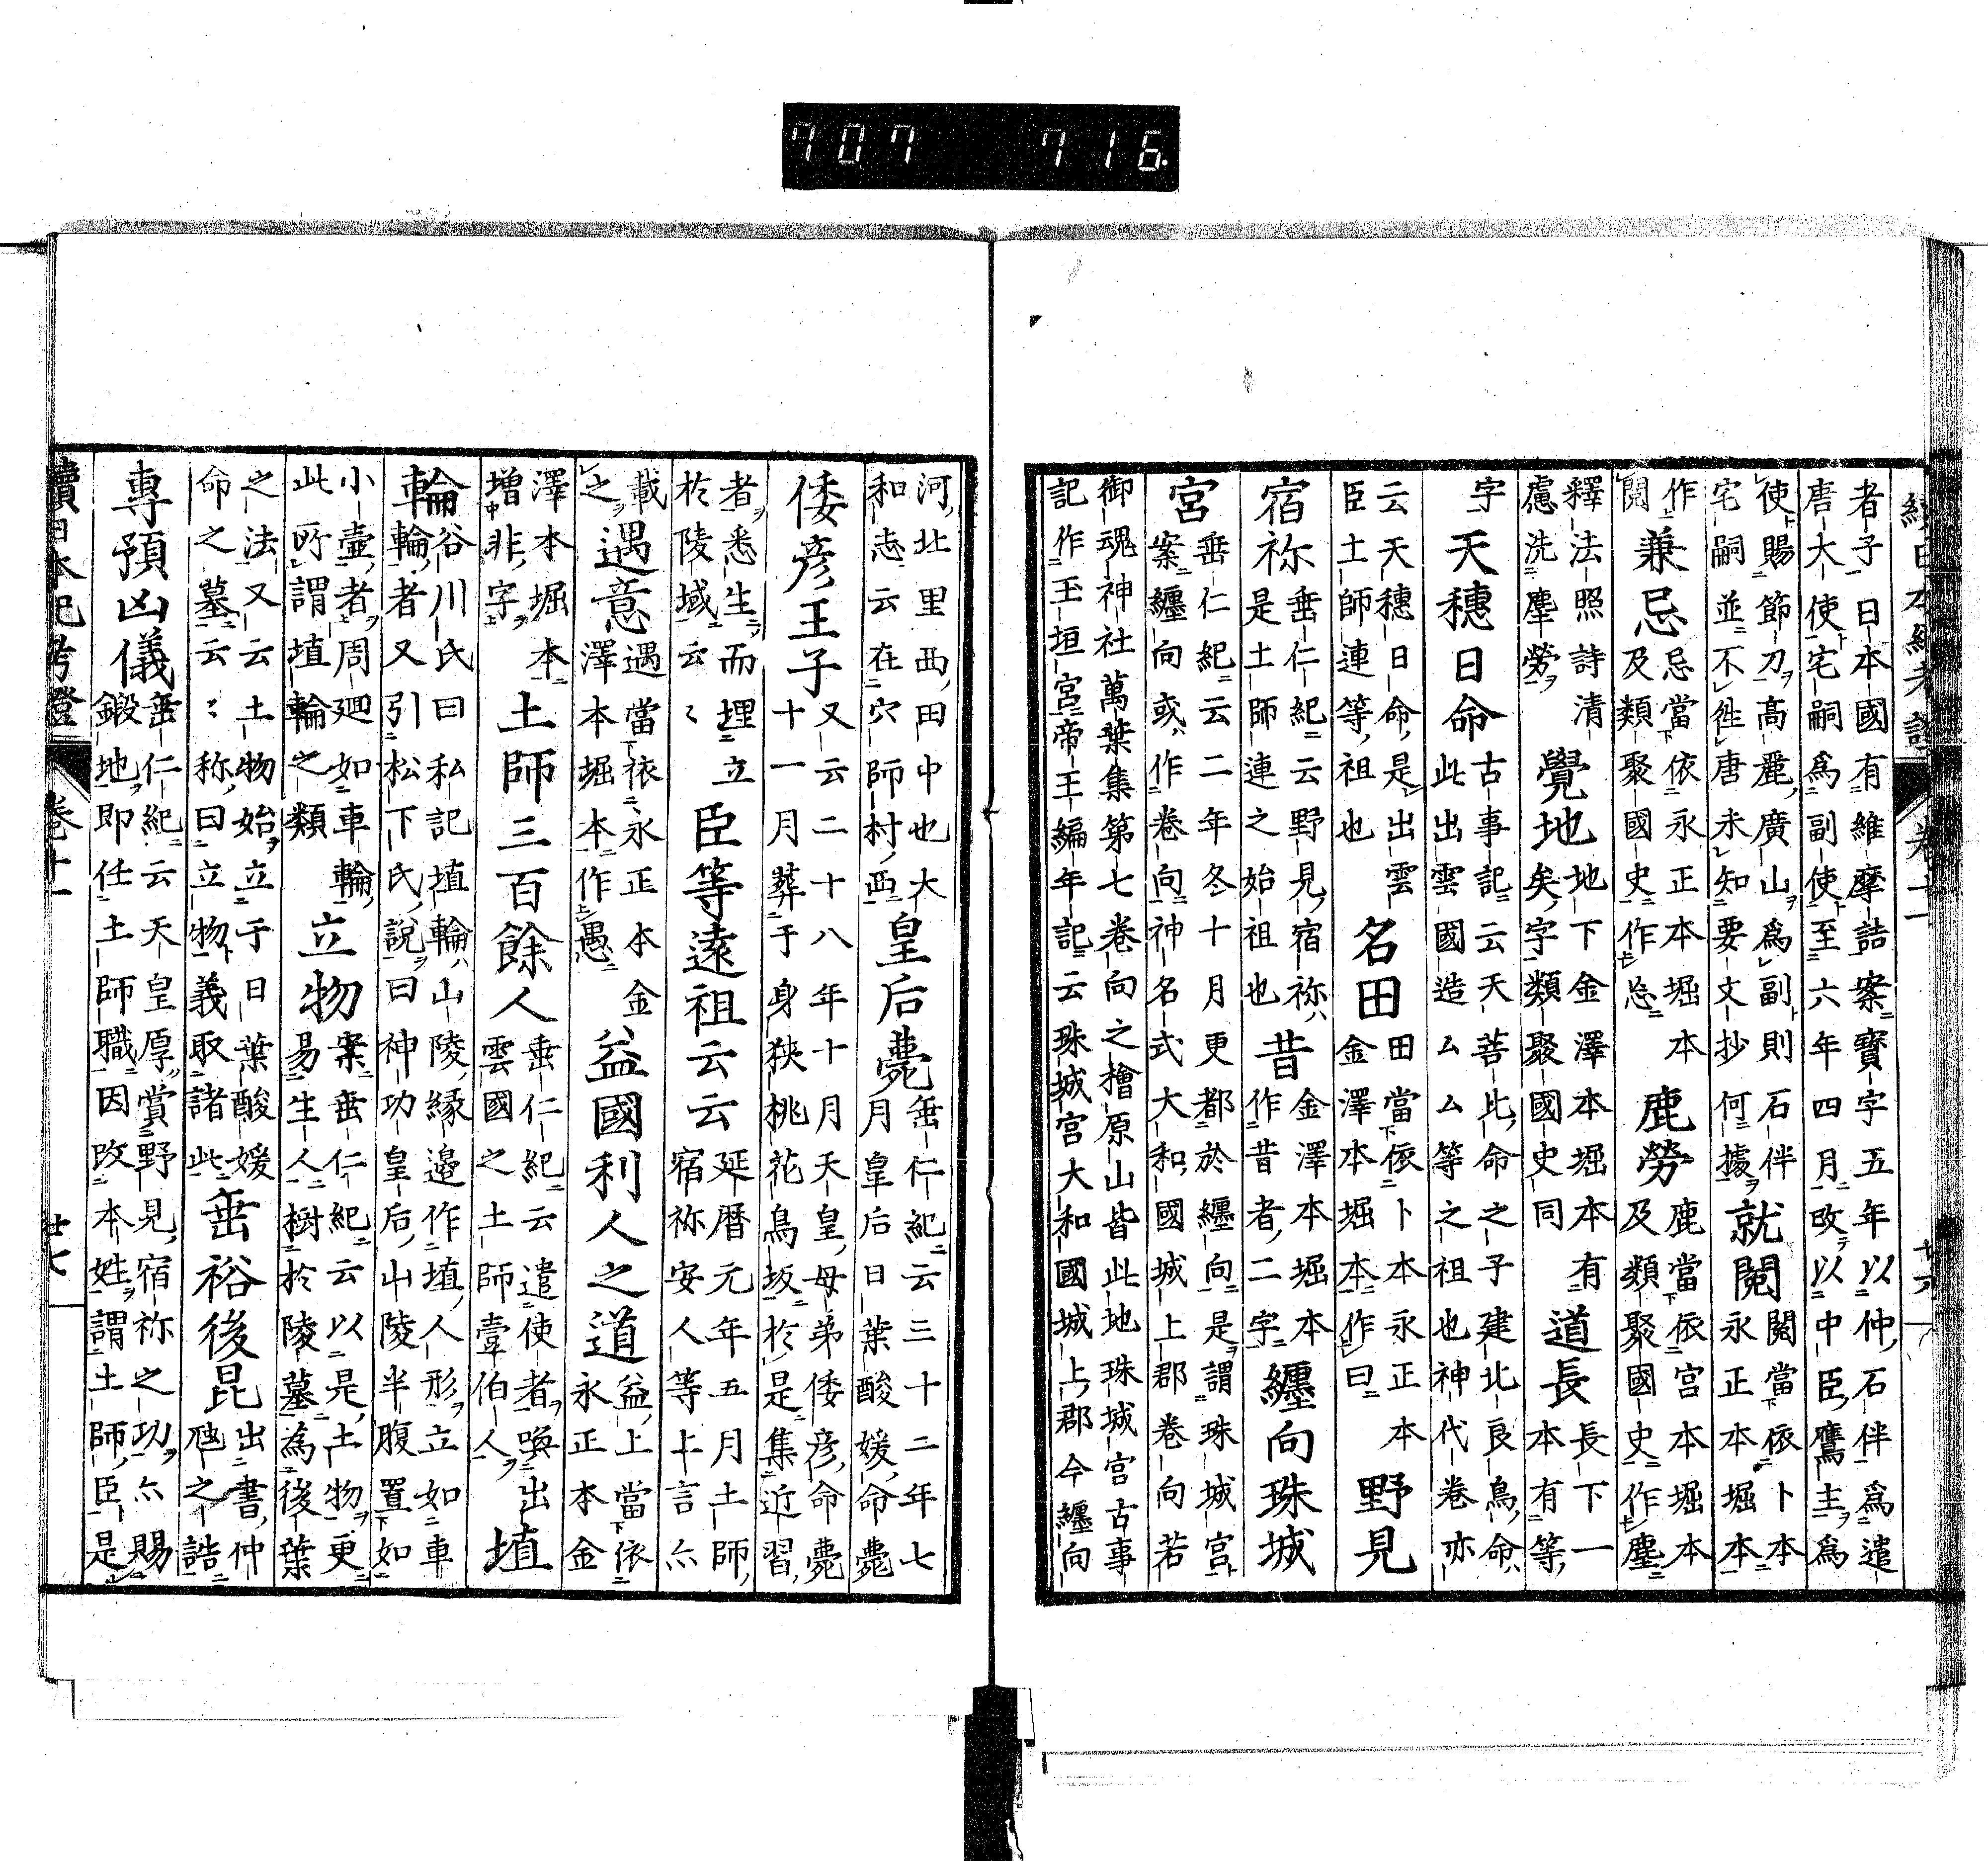 續日本紀考證　卷十一　廿六
者子日本國有維摩詰案寶字五年以仲石伴爲遣
唐大使宅嗣爲副使至六年四月改以中臣鷹主爲
使賜節刀高麗廣山爲副則石伴
宅嗣並不徃唐未知要文抄何據
就閲
閲當依卜本
永正本堀本
作
閲
兼忌
忌當依永正本堀本
及類聚國史作忩
鹿勞
鹿當依宮本堀本
及類聚國史作塵
釋法照詩清
慮洗塵勞
覺地
地下金澤本堀本有
矣字類聚國史同
道長
長下一
本有等
字
天穗日命
古事記云天菩比命之子建比良鳥命
此出雲國造厶厶等之祖也神代卷亦
云天穗日命是出雲
臣土師連等祖也
名田
田當依卜本永正本
金澤本堀本作曰
野見
宿祢
垂仁紀云野見宿祢
是土師連之始祖也
昔
金澤本堀本
作昔者二字
纏向珠城
宮
垂仁紀云二年冬十月更都於纏向是謂珠城宮
案纏向或作卷向神名式大和國城上郡卷向若
御魂神社萬葉集第七卷向之檜原山皆此地珠城宮古事
記作玉垣宮帝王編年記云珠城宮大和國城上郡今纏向
河北里西田中也大
和志云在穴師村西
皇后薨
垂仁紀云三十二年七
月皇后日葉酸媛命薨
倭彦王子
又云二十八年十月天皇母弟倭彦命薨
十一月葬于身狹桃花鳥坂於是集近習
者悉生而埋立
於陵域云〻
臣等遠祖云云
延暦元年五月土師
宿祢安人等上言亦
載
之
遇意
遇當依永正本金
澤本堀本作愚
益國利人之道
益上當依
永正本金
澤本堀本
增非字
土師三百餘人
垂仁紀云遣使者喚出
雲國之土師壹伯人
埴
輪
谷川氏曰私記埴輪山陵縁邊作埴人形立如車
輪者又引松下氏說曰神功皇后山陵半腹置如
小壷者周廻如車輪
此所謂埴輪之類
立物
案垂仁紀云以是土物更
易生人樹於陵墓爲後葉
之法又云土物始立于日葉酸媛
命之墓云〻称曰立物義取諸此
垂裕後昆
出書仲
虺之誥
專預凶儀
垂仁紀云天皇厚賞野見宿祢之功亦賜
鍛地即任土師職因改本姓謂土師臣是
續日本紀考證　卷十一　廿七
707　716.